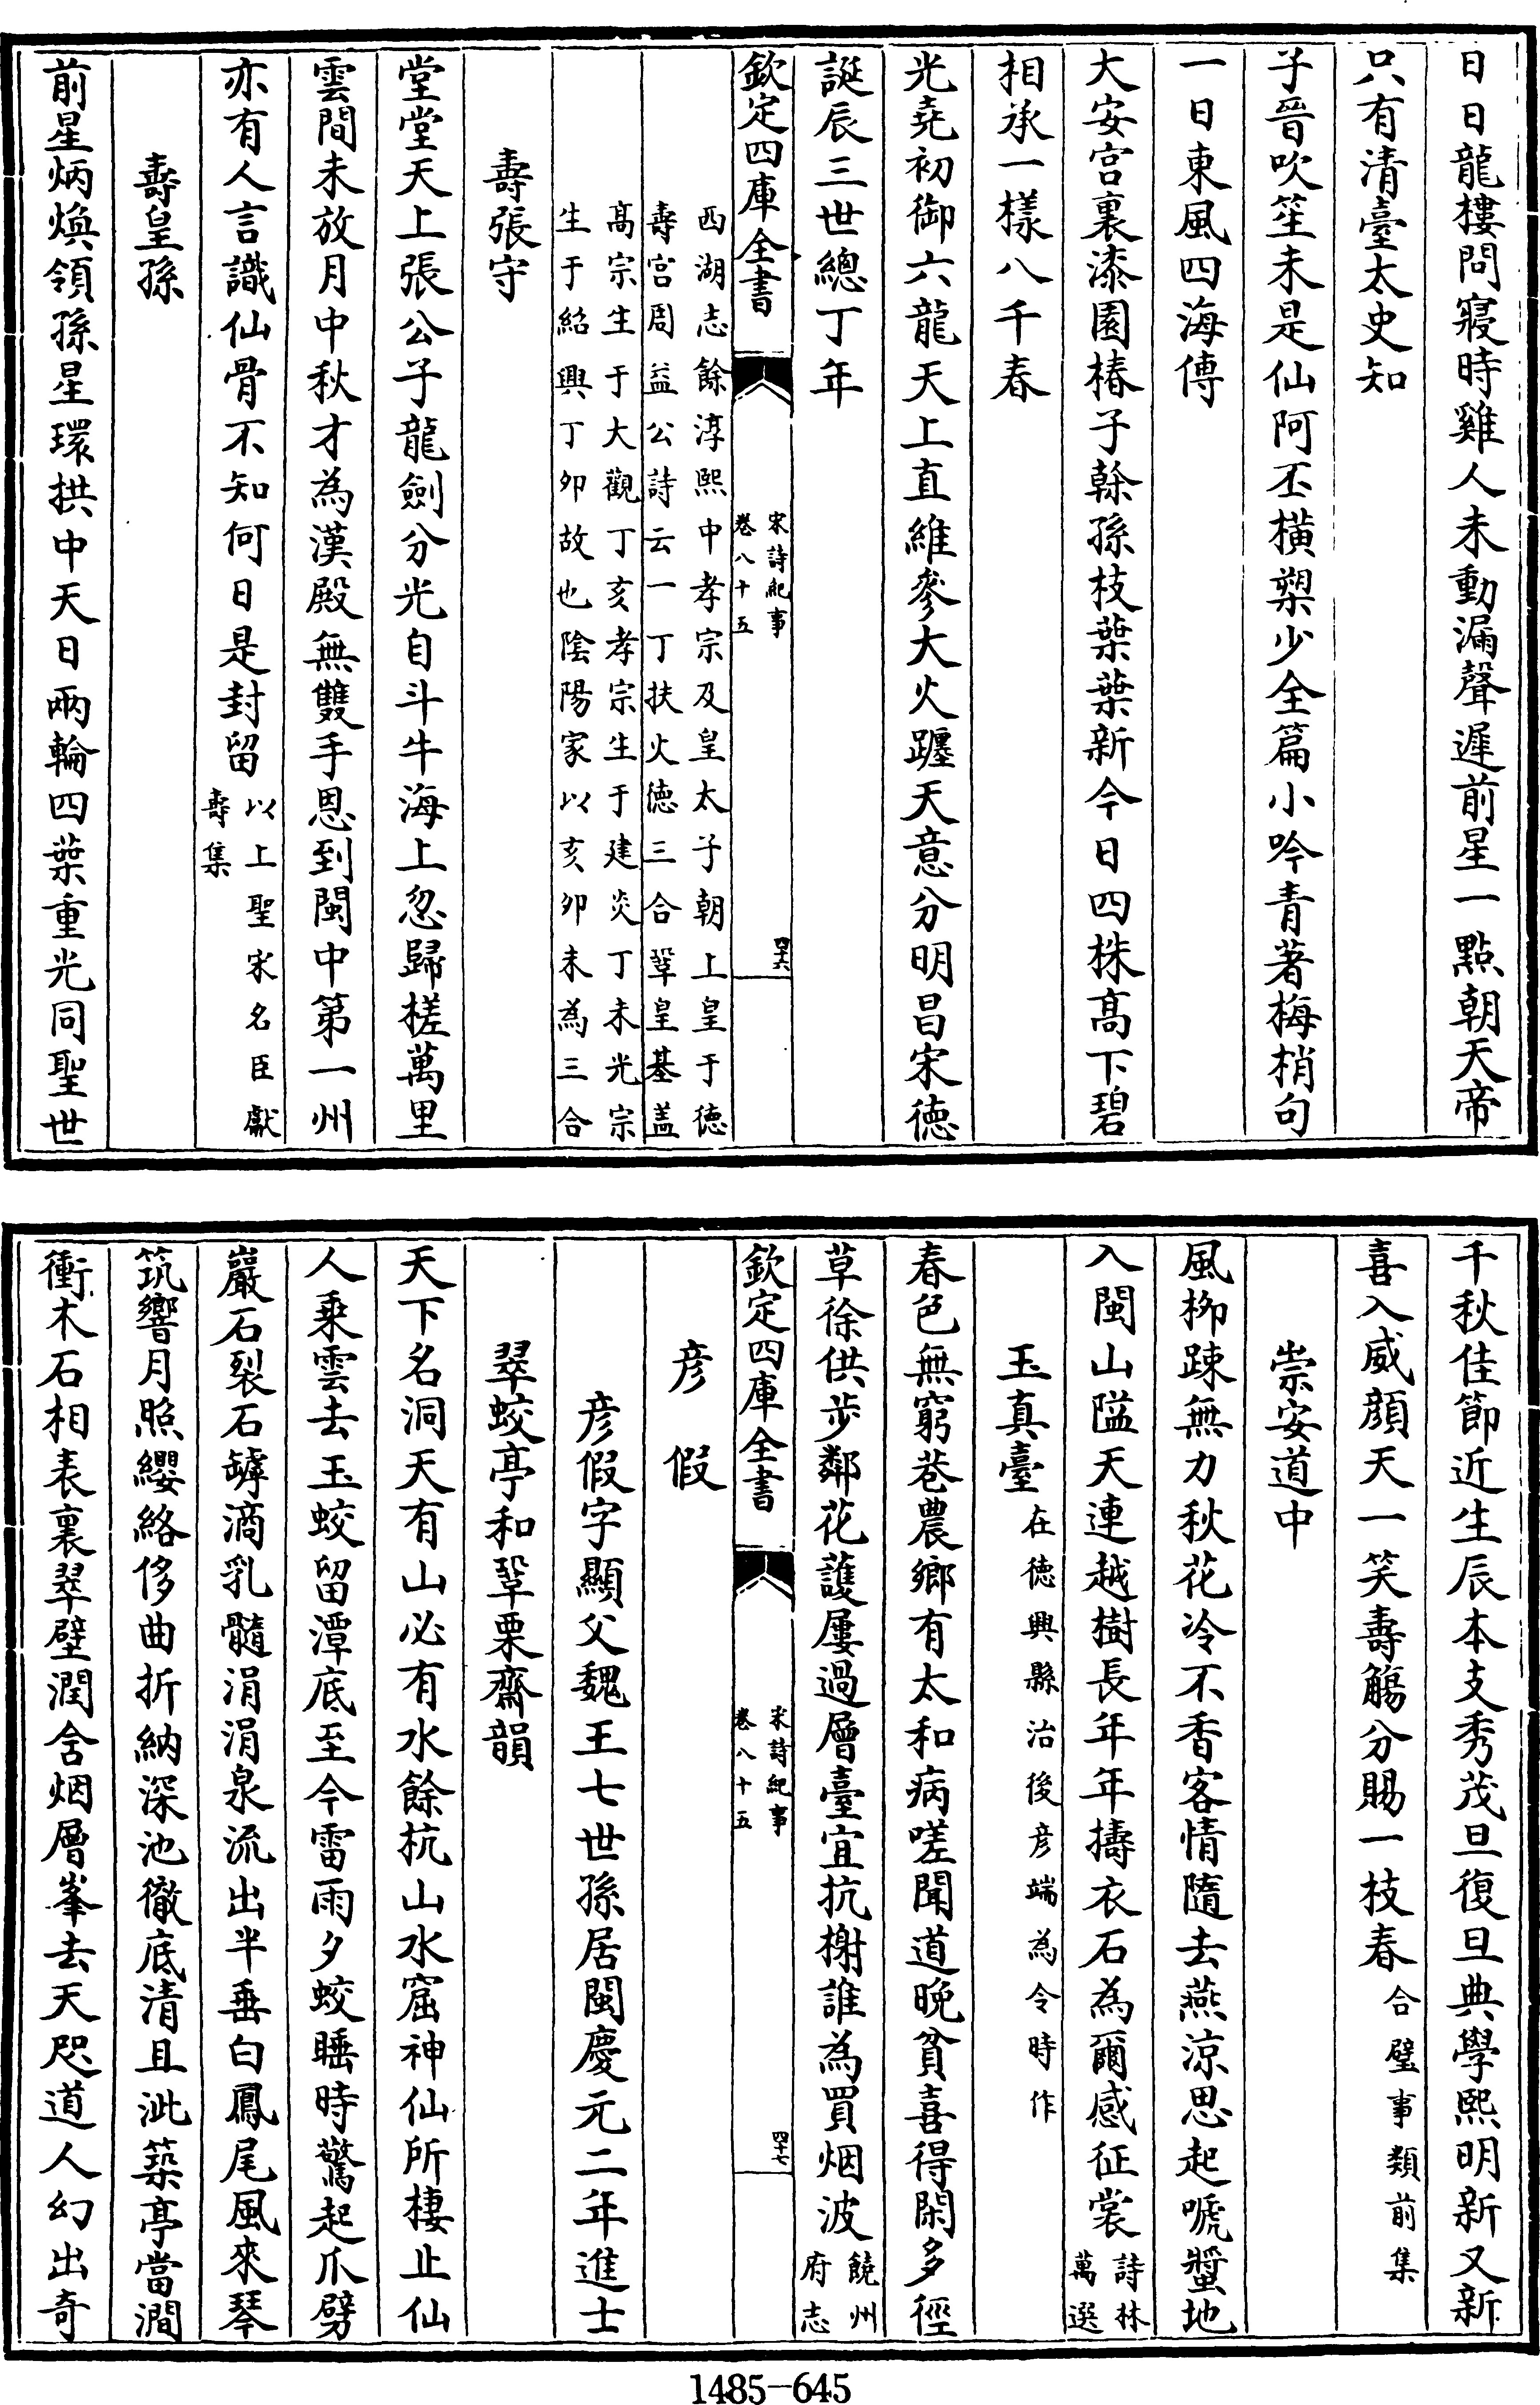 日日龍樓問寢時雞人未動漏聲遲前星一點朝天帝
只有清臺太史知
子晉吹笙未是仙阿丕橫槊少全篇小吟青著梅梢句
一日東風四海傳
大安宮裏漆園椿子榦孫枝葉葉新今日四株高下碧
相承一樣八千春
光堯初御六龍天上直維參大火躔天意分明昌宋德
誕辰三世總丁年
欽定四庫全書
宋詩紀事
卷八十五
四十六
西湖志餘淳熙中孝宗及皇太子朝上皇于德
壽宮周益公詩云一丁扶火德三合鞏皇基蓋
高宗生于大觀丁亥孝宗生于建炎丁未光宗
生于紹興丁卯故也陰陽家以亥卯未為三合
壽張守
堂堂天上張公子龍劍分光自斗牛海上忽歸槎萬里
雲間未放月中秋才為漢殿無雙手恩到閩中第一州
亦有人言識仙骨不知何日是封留
以上聖宋名臣獻
壽集
壽皇孫
前星炳煥領孫星環拱中天日兩輪四葉重光同聖世
千秋佳節近生辰本支秀茂旦復旦典學熙明新又新
喜入威顔天一笑壽觴分賜一枝春
合璧事類前集
崇安道中
風栁疎無力秋花冷不香客情隨去燕涼思起唬螿地
入閩山隘天連越樹長年年擣衣石為爾感征裳
詩林
萬選
玉真臺
在德興縣治後彦端為令時作
春色無窮巷農鄉有太和病嗟聞道晚貧喜得閑多徑
草徐供步鄰花護屢過層臺宜抗榭誰為買烟波
饒州
府志
欽定四庫全書
宋詩紀事
卷八十五
四十七
彦假
彦假字顯父魏王七世孫居閩慶元二年進士
翠蛟亭和鞏栗齋韻
天下名洞天有山必有水餘杭山水窟神仙所棲止仙
人乘雲去玉蛟留潭底至今雷雨夕蛟睡時驚起爪劈
巖石裂石罅滴乳髓涓涓泉流出半垂白鳳尾風來琴
筑響月照纓絡侈曲折納深池徹底清且泚築亭當澗
衝木石相表裏翠壁潤含烟層峯去天咫道人幻出奇
1485-645